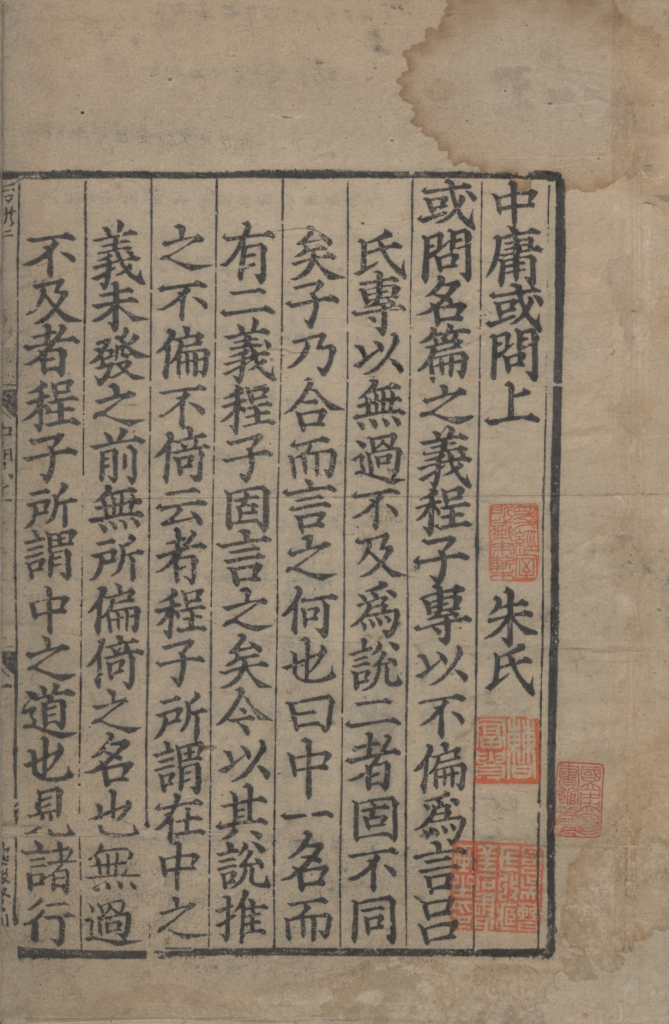 中庸或問上 朱氏
或問名篇之義程子專以不偏爲言呂
氏專以無過不及爲說二者固不同
矣子乃合而言之何也曰中一名而
有二義程子固言之矣今以其說推
之不偏不倚云者程子所謂在中之
義未發之前無所偏倚之名也無過
不及者程子所謂中之道也見諸行